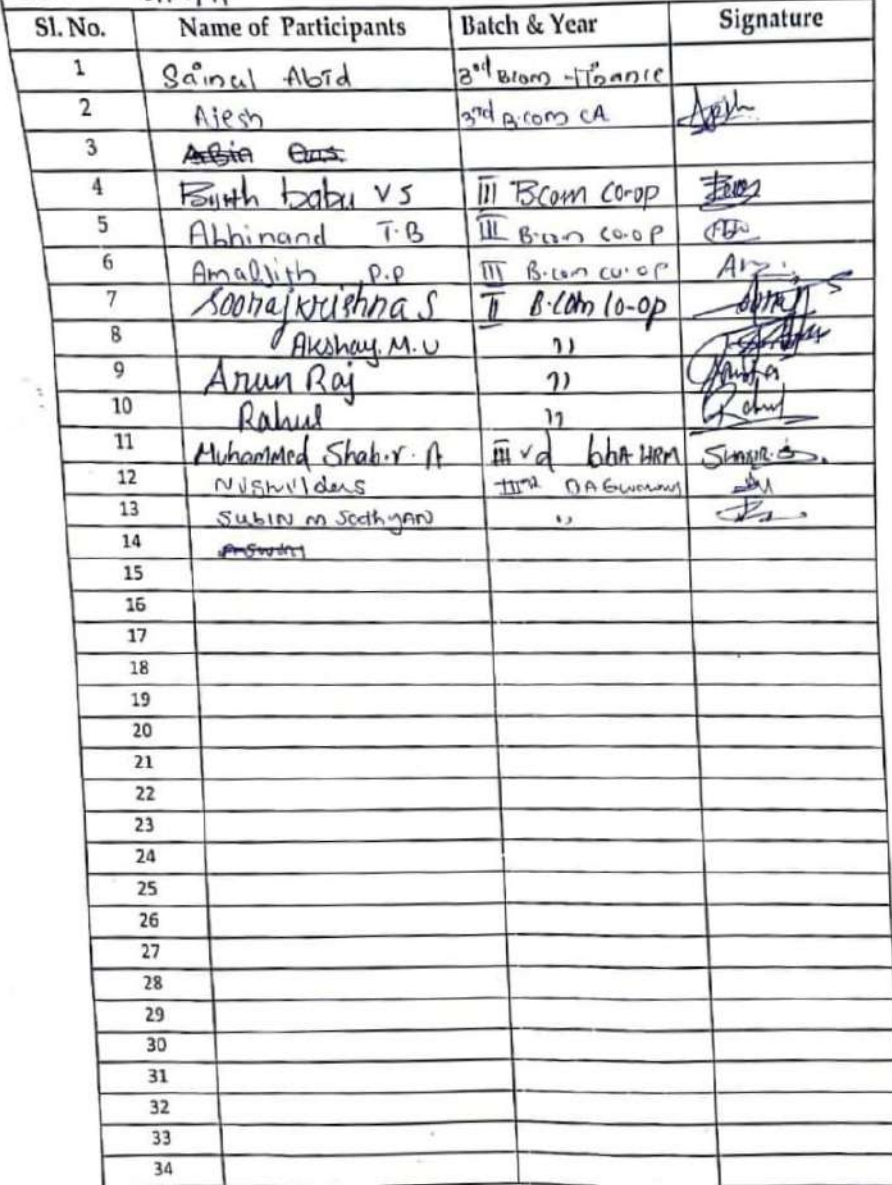 Sl. No. Name of Participants Batch & Year Signature
1 Sainul Abid 3rd Bcom - Finance
2 Ajesh 3rd B.com CA
3
4 babu V S III Bcom Co-op
5 Abhinand T.B III B.com co.op
6 Amaljith P.P III B.com co.op
7 Soorajkrishna S II B.Com Co-op
8 Akshay. M. U ,,
9 Arun Raj ,,
10 Rahul ,, Rahul
11 Muhammed Shabir. A III rd bbA HRM
12
13 SUBIN M ,,
14
15
16
17
18
19
20
21
22
23
24
25
26
27
28
29
30
31
32
33
34